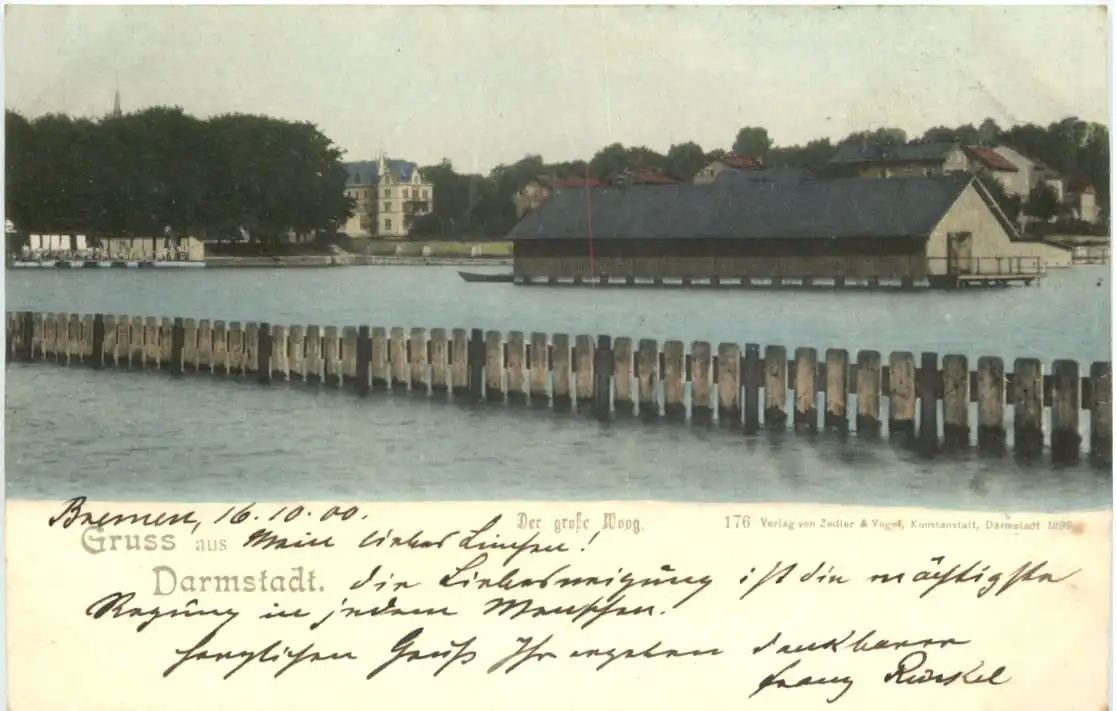 Bremen, 16.10.00.
Der große Woog.
176 Verlag von Zedler & Vogel, Kunstanstalt, Darmstadt 1899
Gruss aus
Mein liebes Linchen!
Darmstadt.
die Liebesneigung ist die mächtigste
Regung in jedem Menschen.
herzlichen Gruß Ihr ergeben dankbarer
Franz